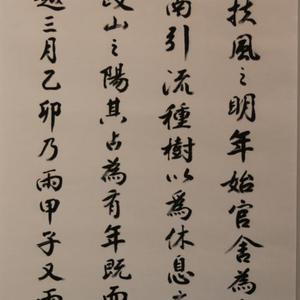 扶風之明年始官舍為
南引流種樹以為休息之
岐山之陽其占為有年既而
越三月乙卯乃雨甲子又雨